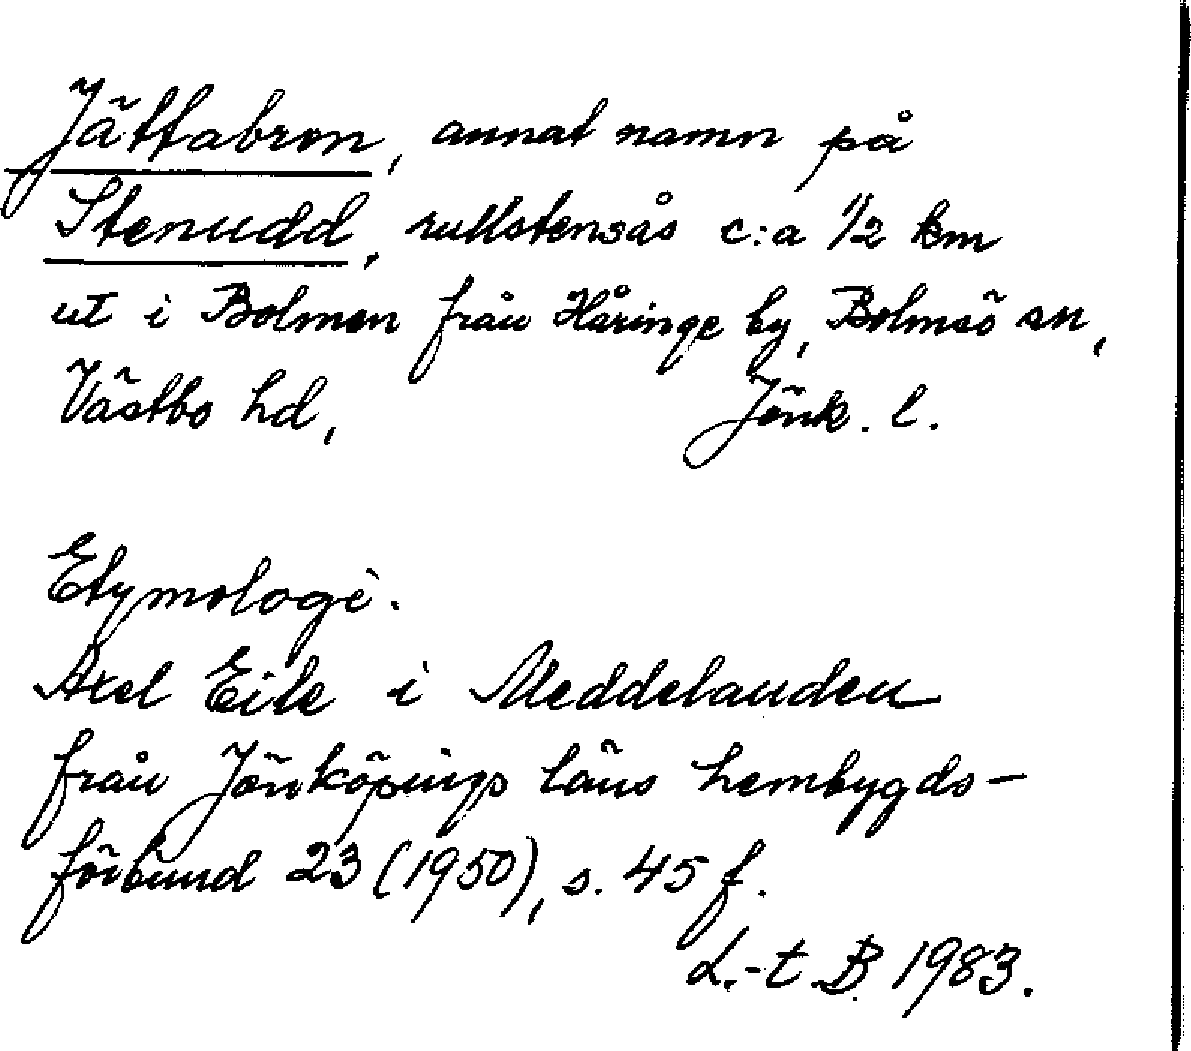 Jättabron, annat namn på
Stenudd, rullstensås c:a 1/2 km
ut i Bolmen från Håringe by, Bolmsö sn,
Västbo hd, Jönk. l.
Etymologi.
Axel Eile i Meddelanden
från Jönköpings läns hembygds-
förbund 23 (1950), s. 45 f.
L.-t B. 1983.